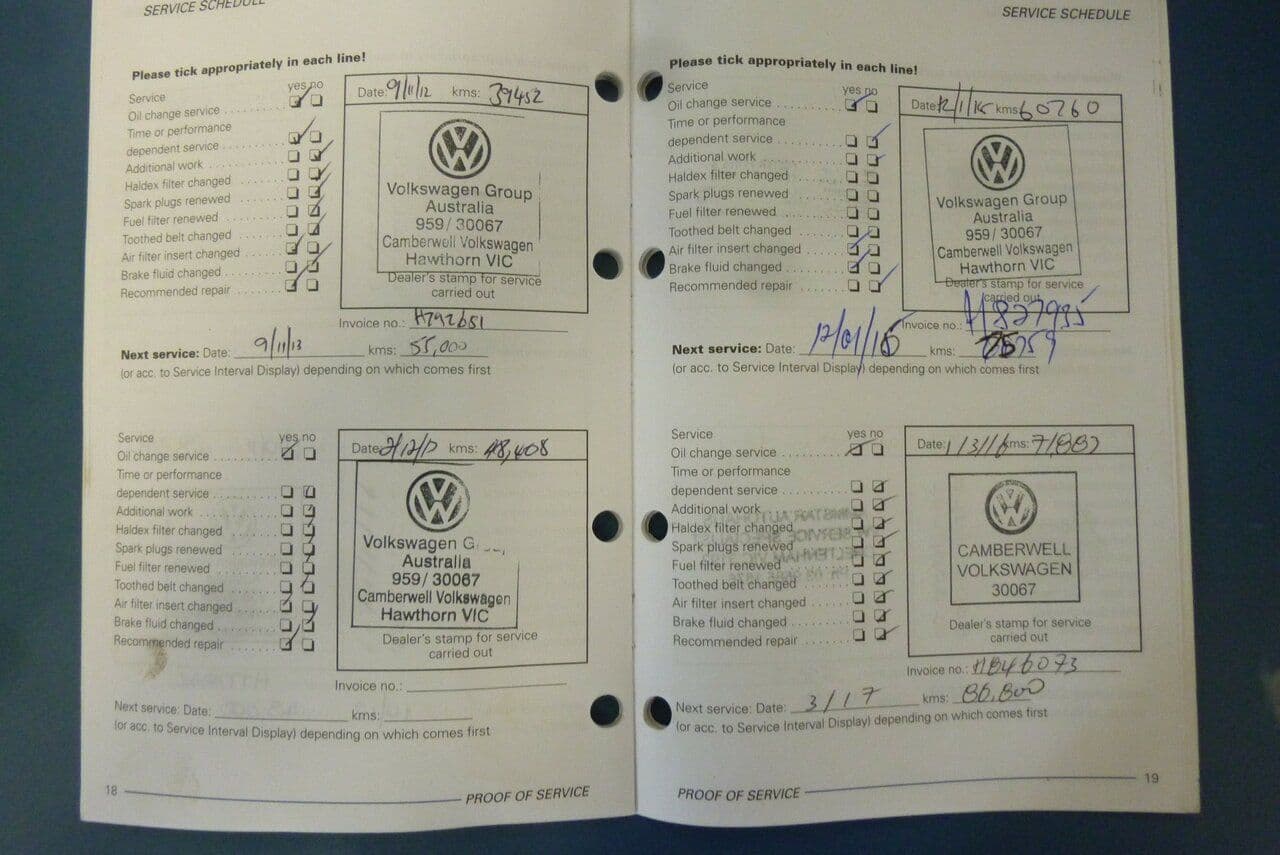 SERVICE SCHEDULE
Please tick appropriately in each line!
yes no
Service
Oil change service
Time or performance
dependent service
Additional work
Haldex filter changed
Spark plugs renewed
Fuel filter renewed
Toothed belt changed
Air filter insert changed
Brake fluid changed
Recommended repair
Date: 9/11/12 kms: 39452
Volkswagen Group
Australia
959/30067
Camberwell Volkswagen
Hawthorn VIC
Dealer's stamp for service
carried out
Invoice no.: H792651
Next service: Date: 9/11/13 kms: 55,000
(or acc. to Service Interval Display) depending on which comes first
Service yes no
Oil change service
Time or performance
dependent service
Additional work
Haldex filter changed
Spark plugs renewed
Fuel filter renewed
Toothed belt changed
Air filter insert changed
Brake fluid changed
Recommended repair
Date: kms: 48,408
Volkswagen
Australia
959/30067
Camberwell Volkswagen
Hawthorn VIC
Dealer's stamp for service
carried out
Invoice no.:
Next service: Date: kms:
(or acc. to Service Interval Display) depending on which comes first
18 PROOF OF SERVICE
SERVICE SCHEDULE
Please tick appropriately in each line!
Service yes no
Oil change service
Time or performance
dependent service
Additional work
Haldex filter changed
Spark plugs renewed
Fuel filter renewed
Toothed belt changed
Air filter insert changed
Brake fluid changed
Recommended repair
Date: 12/1/15 kms: 60760
Volkswagen Group
Australia
959/30067
Camberwell Volkswagen
Hawthorn VIC
Dealer's stamp for service
carried out
Invoice no.: H827935
Next service: Date: 12/01/16 kms:
(or acc. to Service Interval Display) depending on which comes first
Service yes no
Oil change service
Time or performance
dependent service
Additional work
Haldex filter changed
Spark plugs renewed
Fuel filter renewed
Toothed belt changed
Air filter insert changed
Brake fluid changed
Recommended repair
Date: 1/3/16 kms: 71,887
CAMBERWELL
VOLKSWAGEN
30067
Dealer's stamp for service
carried out
Invoice no.: H846073
Next service: Date: 3/17 kms: 86,800
(or acc. to Service Interval Display) depending on which comes first
PROOF OF SERVICE 19